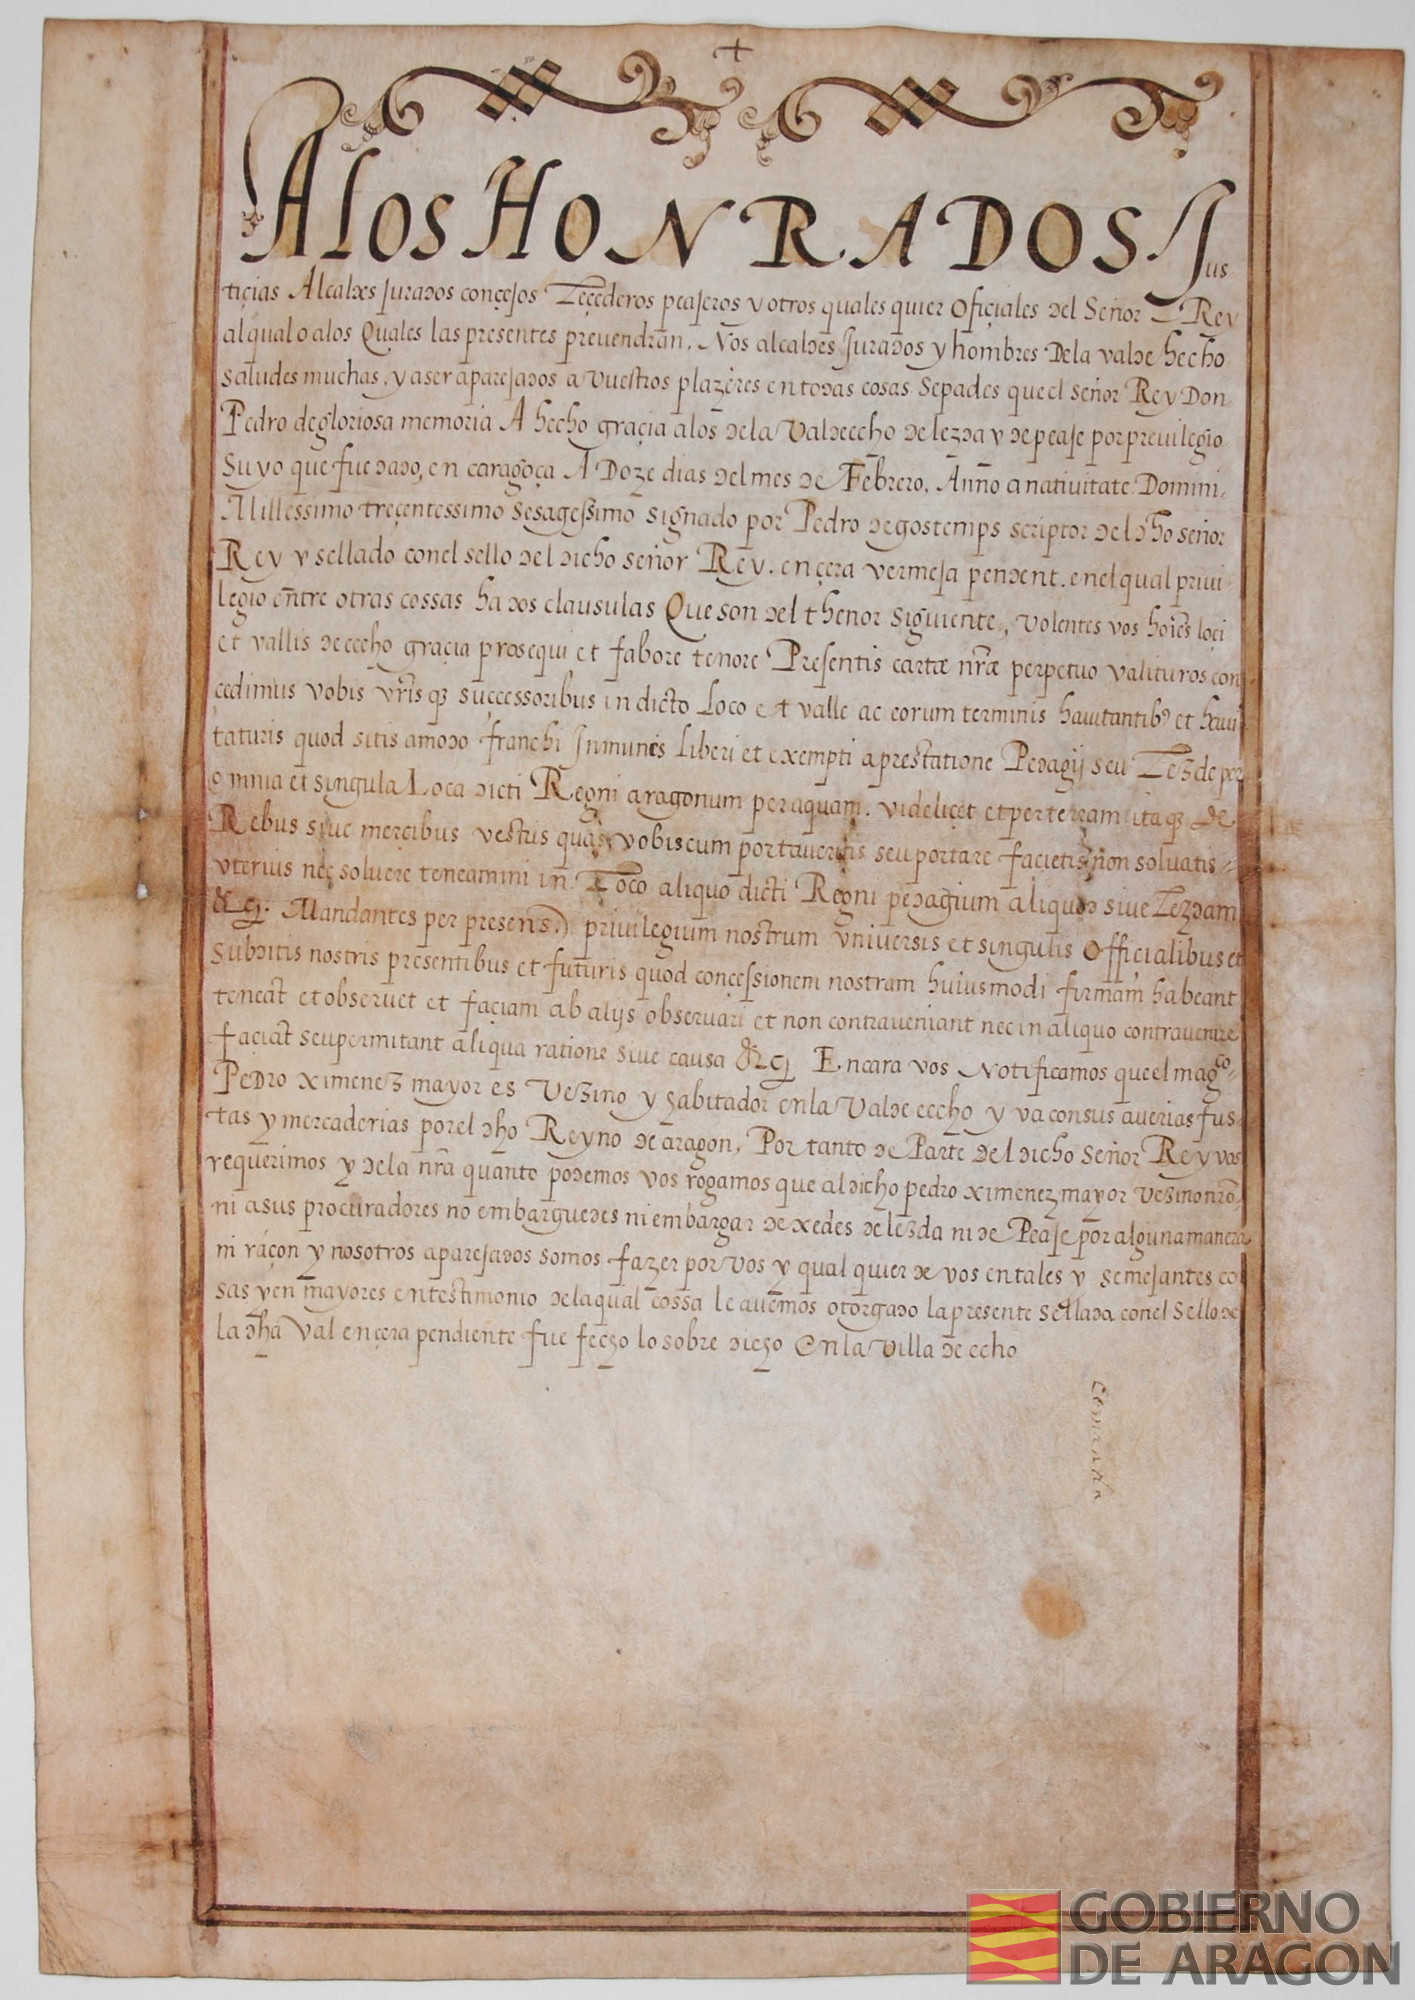 +
A LOS HONRADOS Jus
tiçias Alcaldes Jurados conçejos Leçederos peajeros y otros quales quier Ofiçiales del Señor Rey
al qual o a los Quales las presentes prevendran, Nos alcaldes Jurados y hombres De la val de hecho
saludes muchas, y a ser aparejados a vuestros plazeres en todas cosas Sepades que el señor Rey Don
Pedro de gloriosa memoria A hecho graçia a los de la Val de echo de lezda y de peaje por previlegio
Suyo que fue dado, en caragoça A Doze dias del mes de Febrero, Anño a nativitate Domini,
Millessimo treçentessimo sesagessimo signado por Pedro de gostemps scriptor del dho señor
Rey y sellado con el sello del dicho señor Rey. en çera vermeja pendent. en el qual privi
legio entre otras cossas ha dos clausulas Que son del thenor siguiente, volentes vos hoies loçi
et vallis de echo graçia prosequi et fabore tenore Presentis cartæ nræ perpetuo valituros con
çedimus vobis vris q3 successoribus in dicto Loco et valle ac eorum terminis havitantib9 et havi
taturis quod sitis amodo franchi Inmunes liberi et exempti a prestatione Pedagij seu Lezde per
omnia et singula Loca dicti Regni aragonum per aquam. videliçet et per terram ita q3 de
Rebus sive mercibus vestus quas vobiscum portaveritis seu portare façietis non solvatis
vterius neç solvere teneamini in Loco aliquo dicti Regni pedagium aliquod sive Lezdam
&c. Mandantes per presens privilegium nostrum vniversis et singulis Officialibus et
Subditis nostris presentibus et futuris quod conçessionem nostram huiusmodi firmam habeant
teneāt et observet et façiam ab alijs observari et non contraveniant nec in aliquo contravenire
façiāt seu permitant aliqua ratione sive causa &c Encara vos Notificamos que el magco
Pedro ximenez mayor es Vezino y habitador en la Val de echo y va con sus averias fus
tas y mercaderias por el dho Reyno de aragon, Por tanto de Parte del dicho señor Rey vos
requerimos y de la nra quanto podemos vos rogamos que al dicho pedro ximenez mayor vezino nro
ni a sus procuradores no embarguedes ni embargar dexedes de lezda ni de Peaje por alguna manera
ni raçon y nosotros aparejados somos fazer por vos y qual quier de vos en tales y semejantes co
sas y en mayores en testimonio de la qual cossa le avemos otorgado la presente sellada con el Sello de
la dha Val en çera pendiente fue fecho lo sobre dicho en la villa de echo
GOBIERNO
DE ARAGON